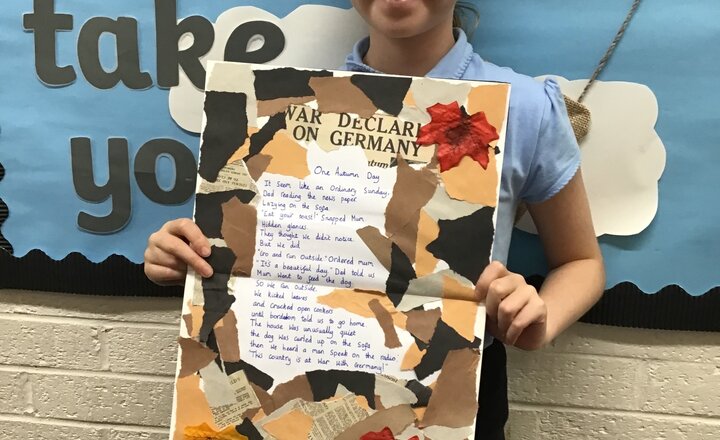 take
you
WAR DECLAR
ON GERMANY
One Autumn Day
It seem like an Ordinary Sunday,
Dad reading the news paper
Lazying on the sofa.
"Eat your toast!" Snapped Mum
Hidden glances
They thought we didn't notice
But we did
"Go and run outside." Ordered mum
"It's a beautiful day." Dad told us
Mum went to feed the dog
So we ran outside.
We kicked leaves
and cracked open conkers
until boredom told us to go home
The house was unusually quiet
the dog was curled up on the sofa
then we heard a man speak on the radio
"This country is at War with Germany!"